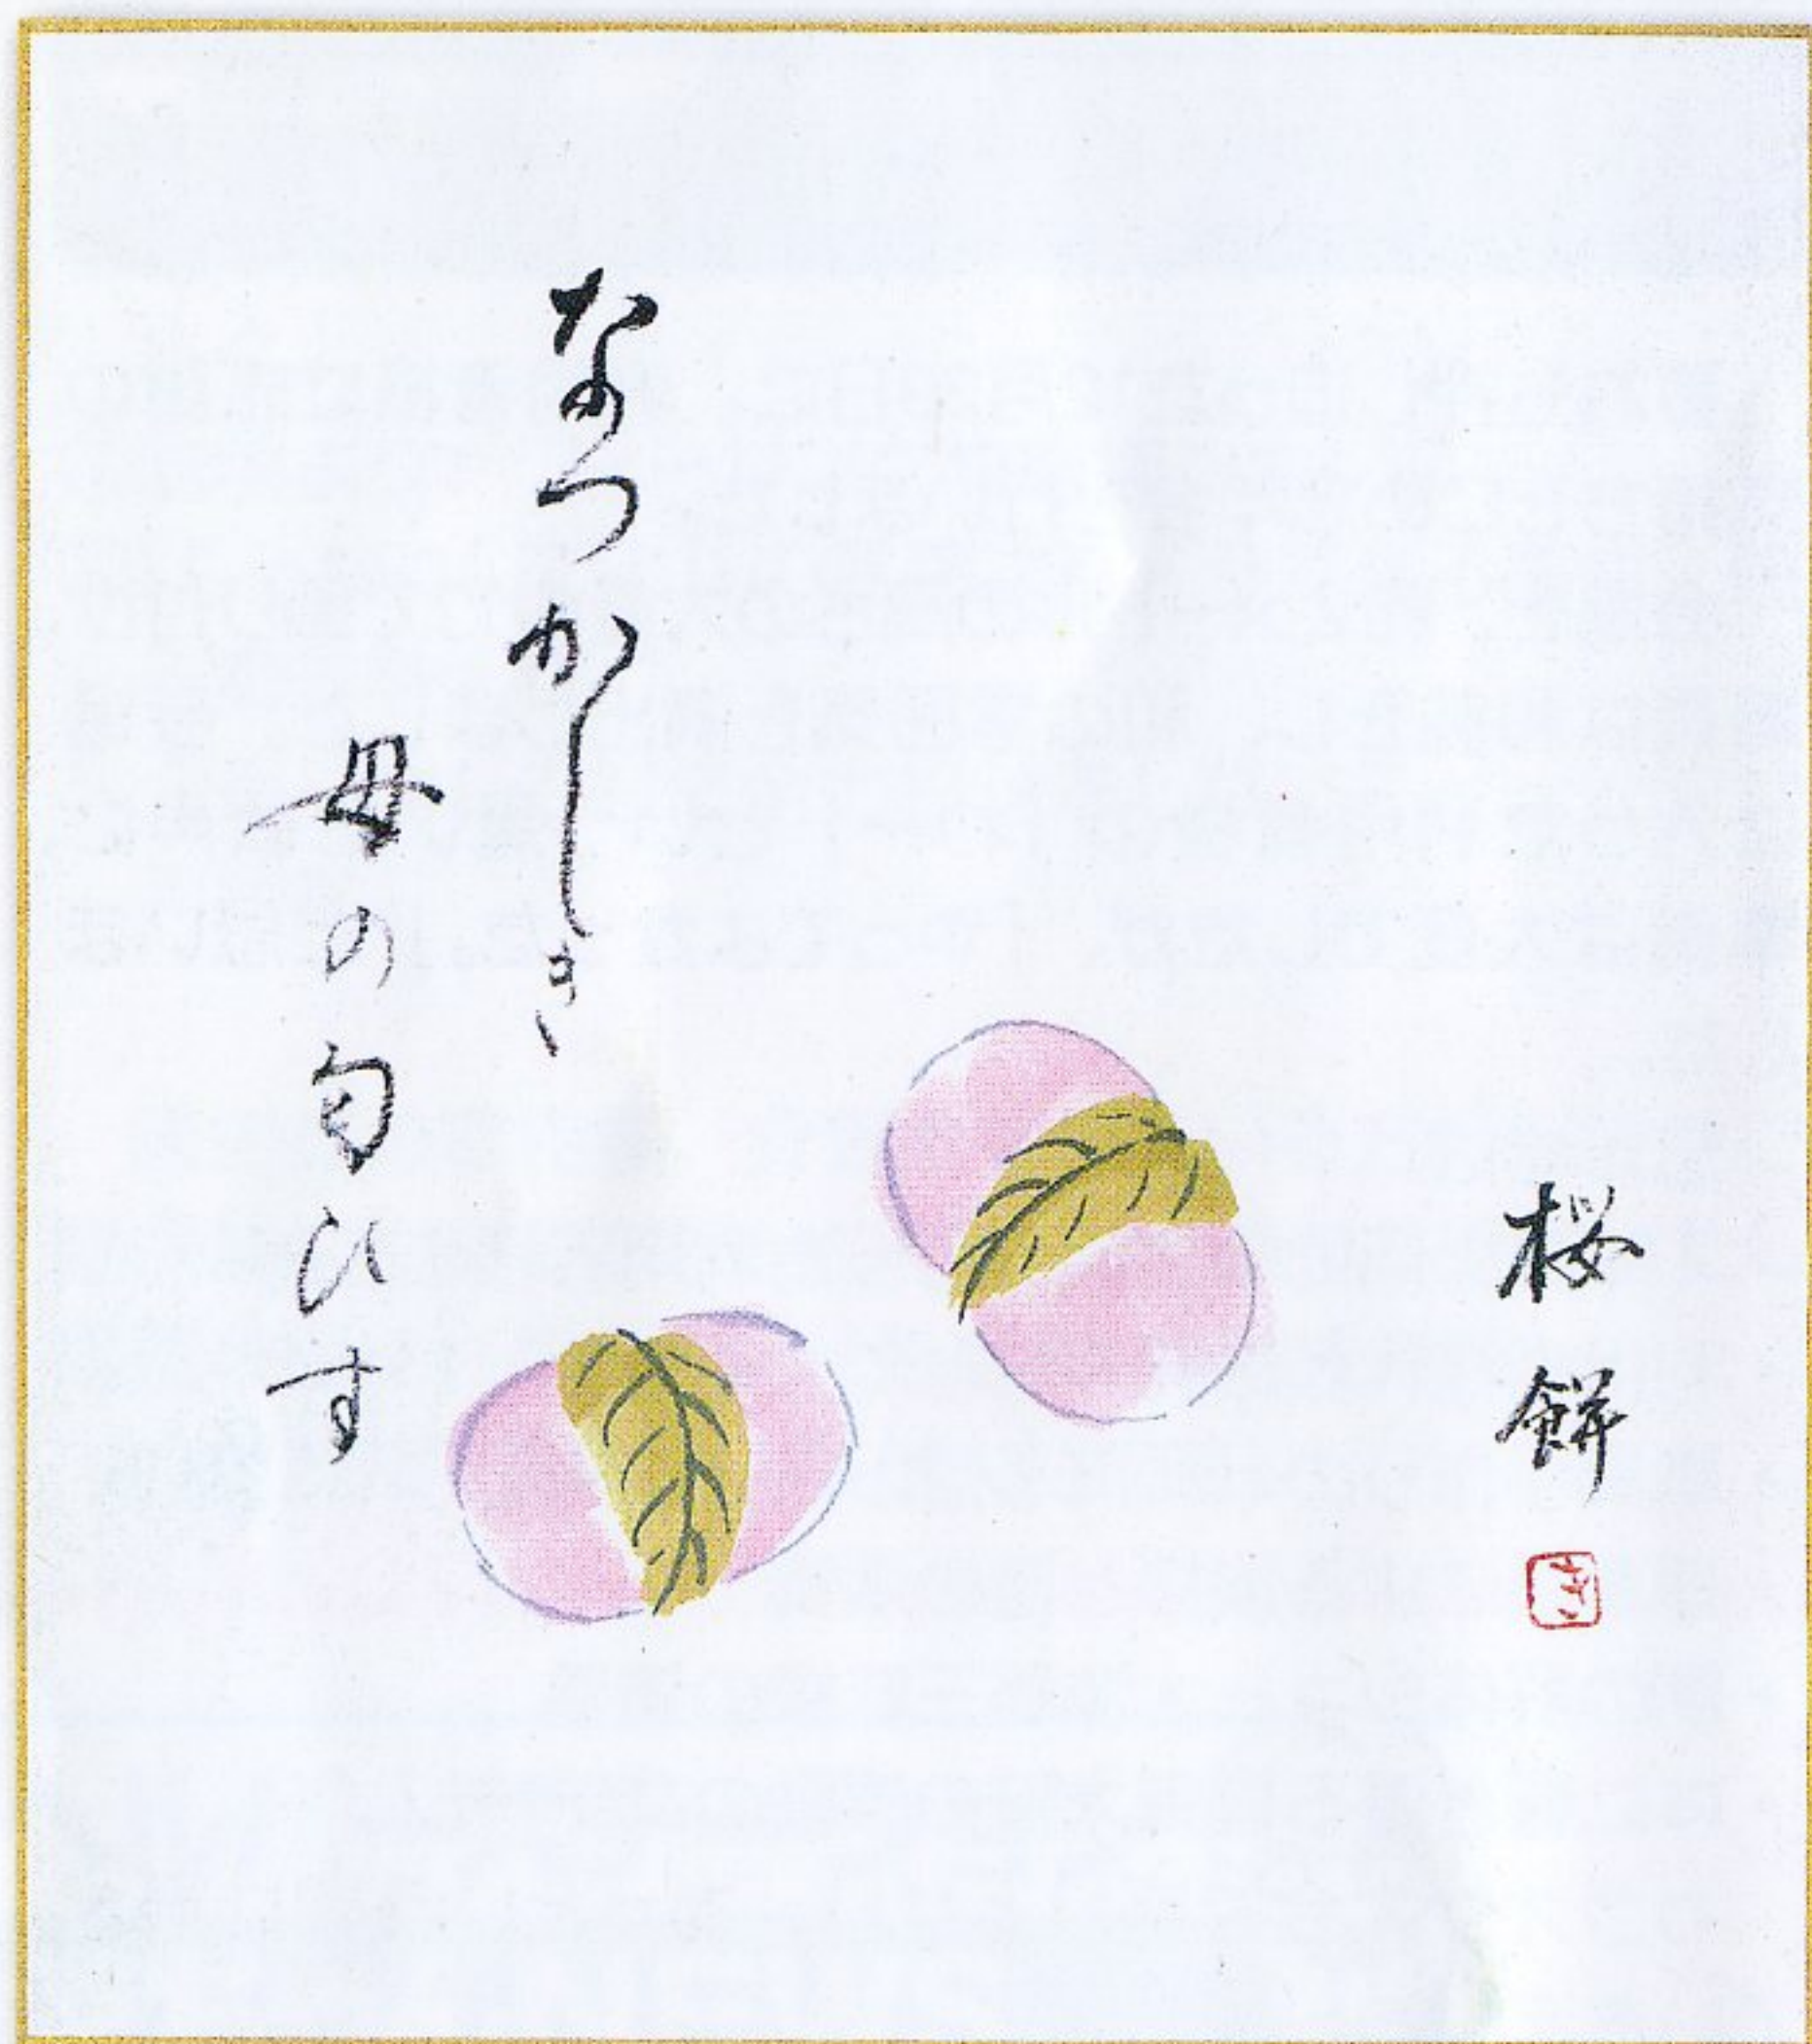 桜餅
なつかしき
母の匂ひす